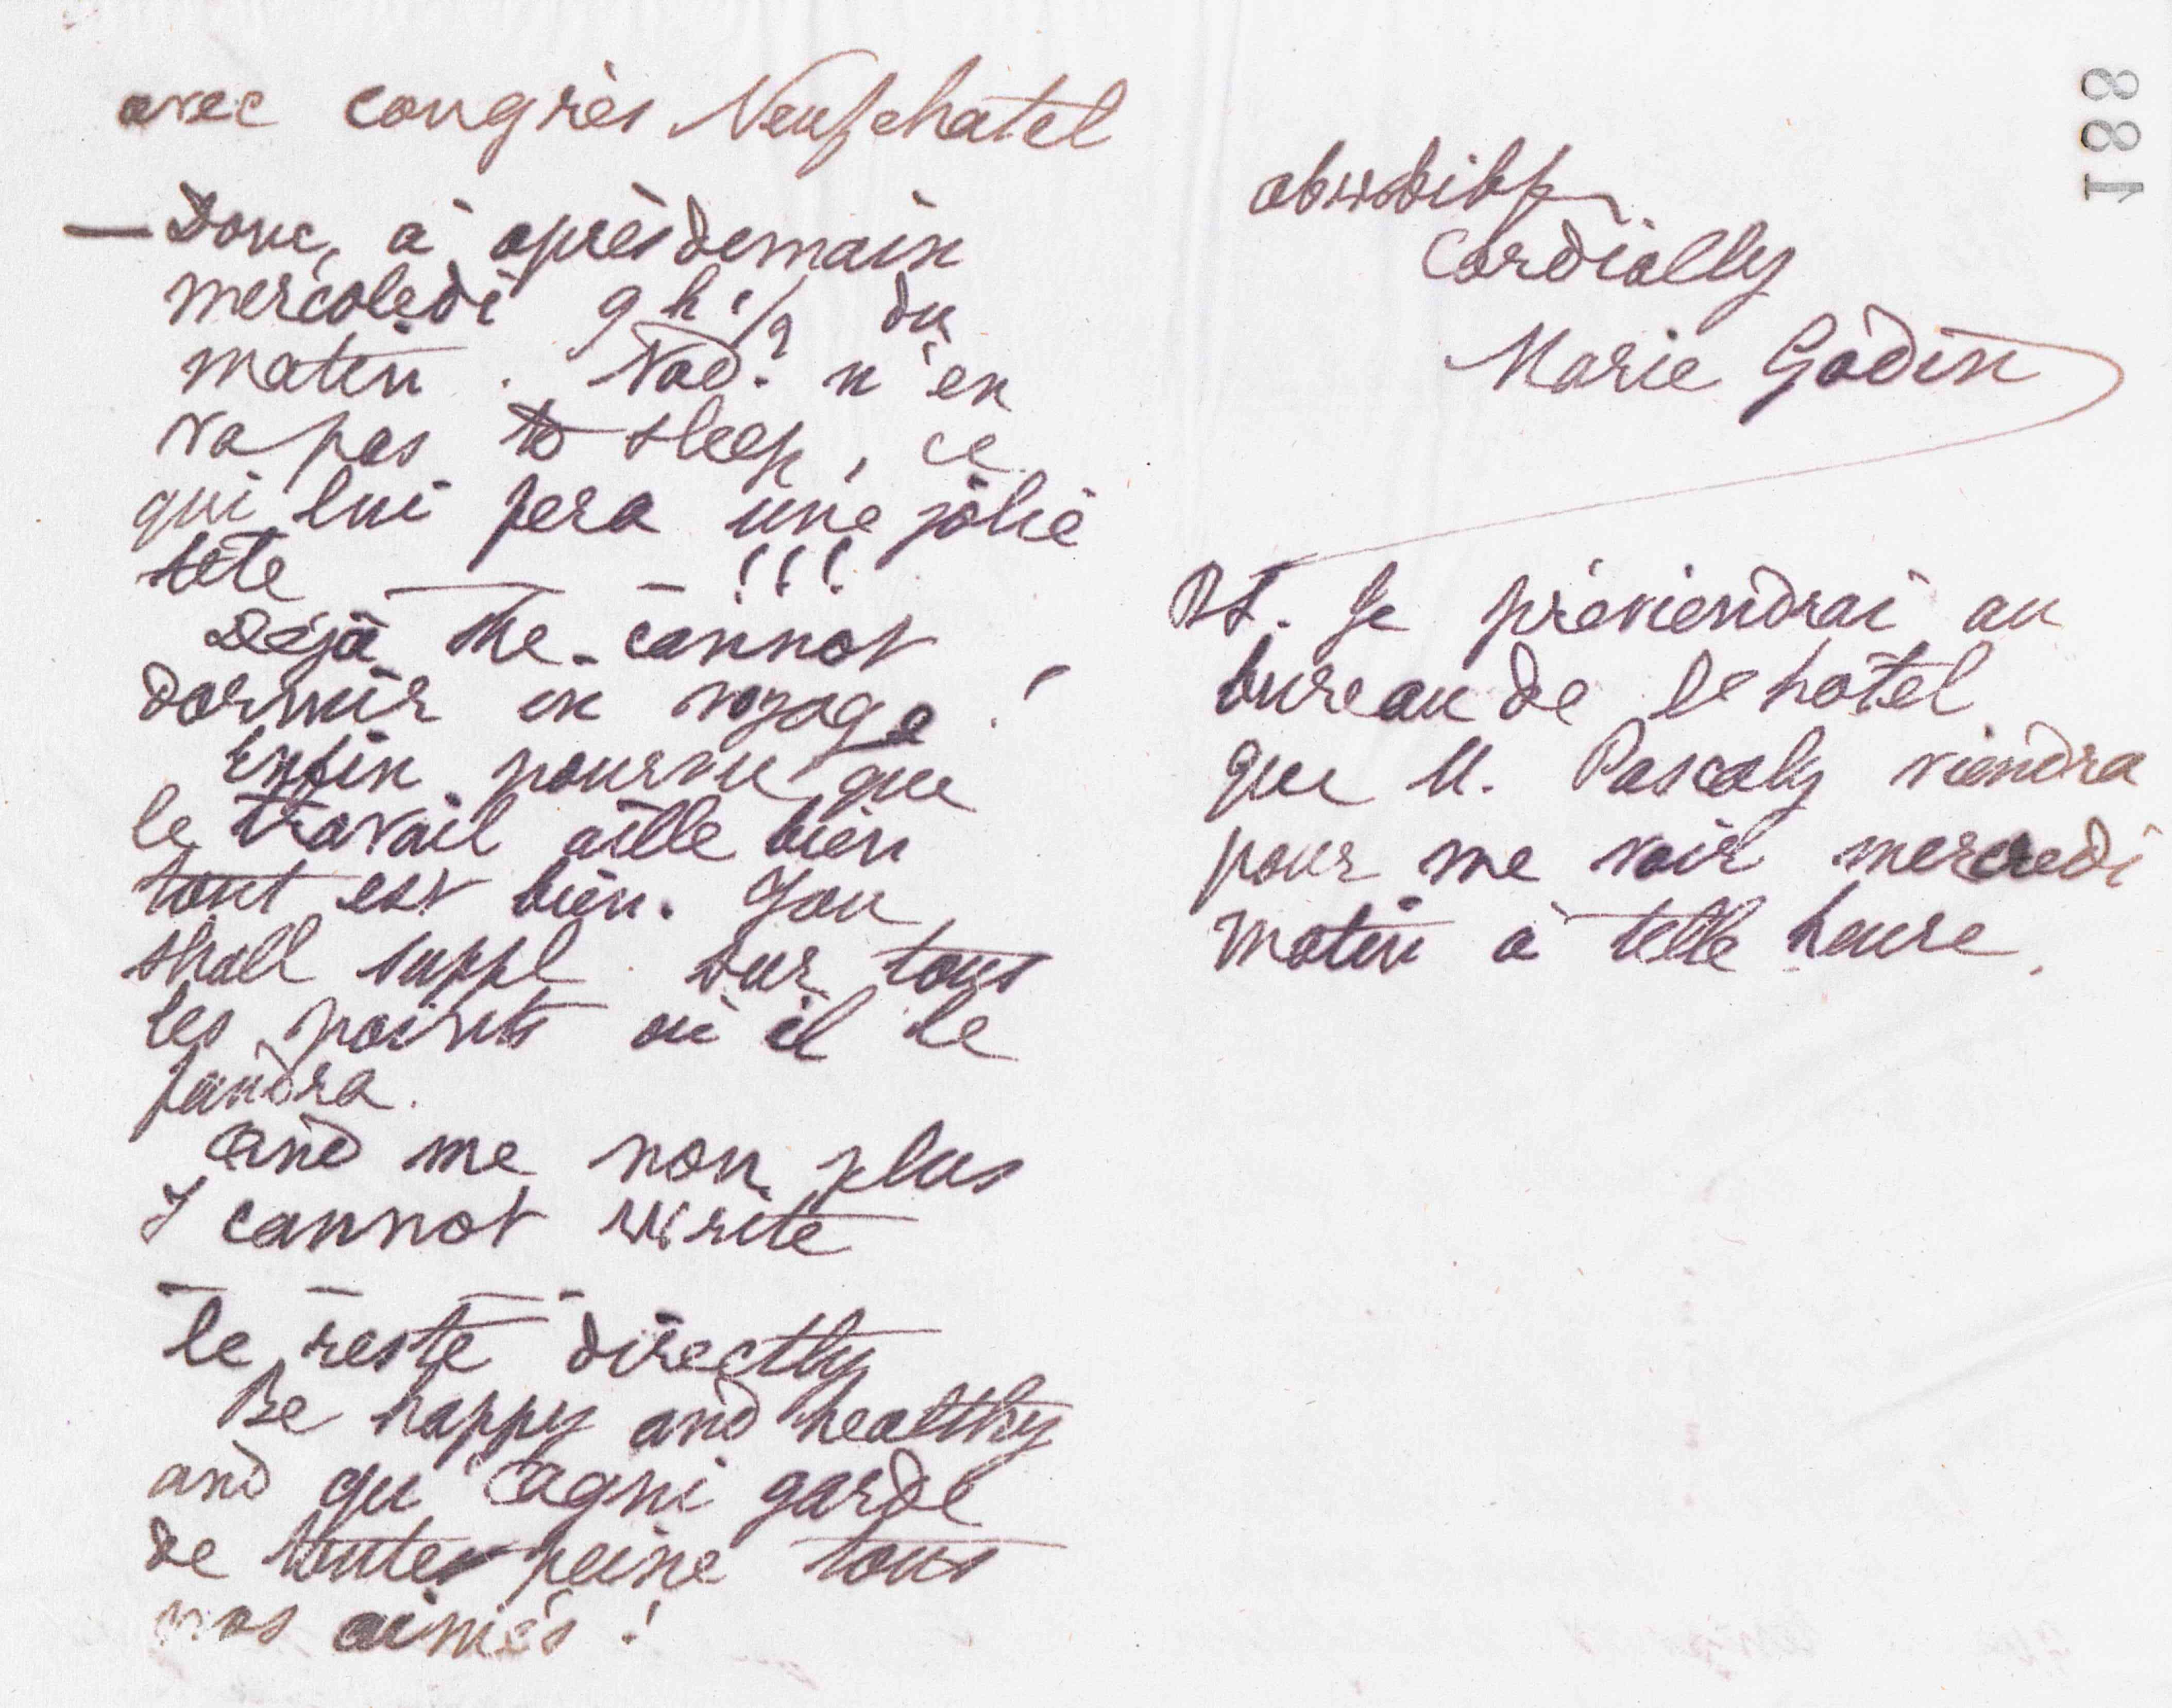 avec congrès Neufchatel
— Donc, à après demain
mercoledi 9 h 1/2 du
matin. Nad. n'en
va pas to sleep, ce
qui lui fera une jolie
tête — — !!!
Déjà the cannot
dormir en voyage !
Enfin pourvu que
le travail aille bien
tout est bien. You
shall suppl sur tous
les points où il le
faudra.
And me non plus
I cannot write
— — — —
le reste directly
Be happy and healthy
and qu'Agni garde
de toutes peine tous
nos aimés !
188
Cordially
Marie Godin
PS. Je préviendrai au
bureau de le hôtel
que M. Pascaly viendra
pour me voir mercredi
matin à telle heure.